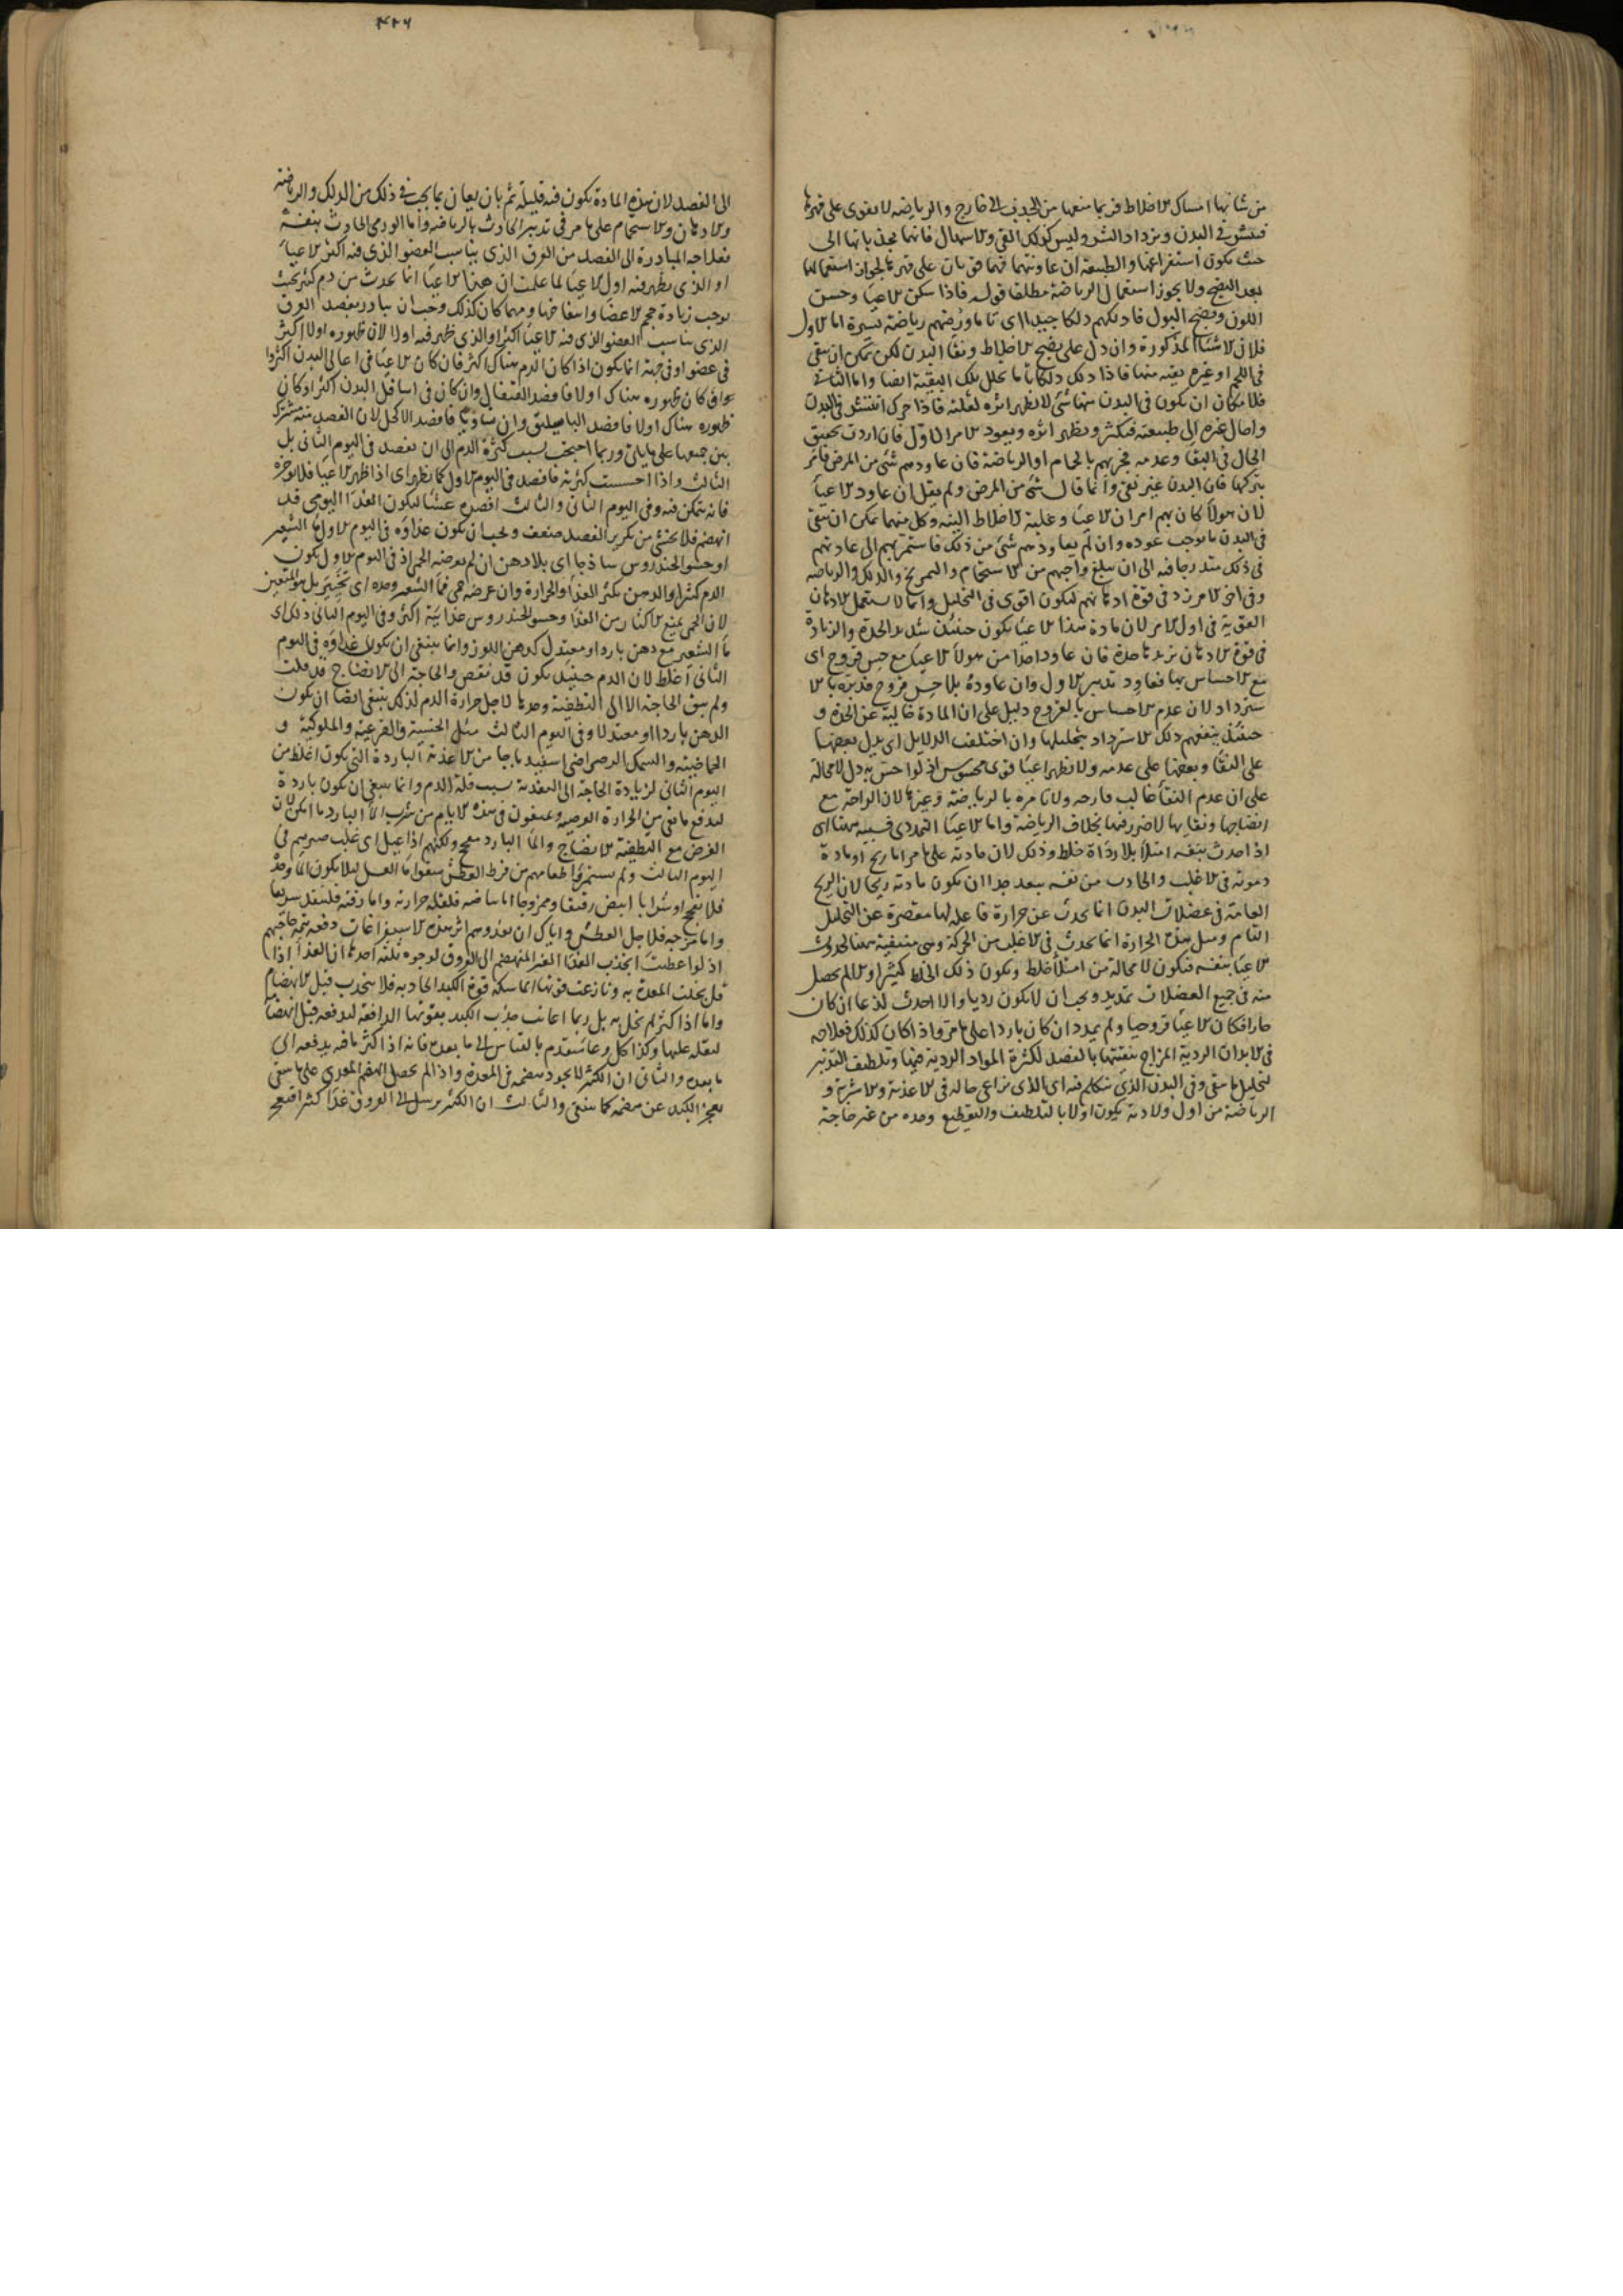 من شانها امساك الاخلاط فربما منعها من الجذب الى خارج والرياضه لا تقوى على قهرها
فتنتشر فى البدن ويزداد الشر وليس كذلك القى والاسهال فانهما يجذبانها الى
حيث يكون استفراغها والطبيعة ان عاونتهما
بعد النضج ولا يجوز استعمال الرياضة مطلقا قوله فاذا سكن الاعيا وحسن
اللون ونضج البول فادلكهم دلكا جيدا اى تاما ورضهم رياضة يسيرة اما الاول
فلان الاشيا المذكورة وان دل على نضج الاخلاط ونقا البدن لكن يمكن ان يبقى
فى اللحم او غيره بقيه منها فاذا دلك دلكا تاما تحلل تلك البقية ايضا واما الثانى
فلامكان ان يكون فى البدن منها شئ لا يظهر اثره لقلته فاذا حرك انتشر فى البدن
واحال غيره الى طبيعته فيكثر ويظهر اثره ويعود الامر الاول فان اردت تحقيق
الحال فى النقا وعدمه فجربهم بالحمام او الرياضة فان عاودهم شئ من المرض فامر
بتركها فان البدن غير نقى وانما قال شئ من المرض ولم يقل ان عاود الاعيا
لان هولا كان بهم امران الاعيا وغلبة الاخلاط النيه وكل منهما يمكن ان يبقى
فى البدن ما يوجب عوده وان لم يعاودهم شئ من ذلك فاستمر بهم الى عادتهم
فى ذلك متدرجا فيه الى ان يبلغ واجبهم من الاستحمام والتمريخ والدلك والرياضه
وفى اخر الامر زد فى قوة ادهانهم ليكون اقوى فى التحليل وانما لا يستعمل الادهان
القوية فى اول الامر لان مادة هذا الاعيا يكون حينئذ شديد الحدة والزيادة
فى قوة الادهان يزيدها حدة فان عاود احدا من هولا الاعيا مع حس قروح اى
مع الاحساس بها فعاود تدبير الاول وان عاوده بلا حس قروح فدبره بالا
سترداد لان عدم الاحساس بالقروح دليل على ان المادة خالية عن الحدة و
حينئذ ينفعهم دلك الاسترداد بتحليلها وان اختلفت الدلايل اى يدل بعضها
على النقا وبعضها على عدمه ولا يظهر اعيا قوى محسوس اذ لو احس به دل لا محالة
على ان عدم النقا غالب فارحه ولا تامره بالرياضة وغيرها لان الراحة مع
انضاجها ونقايها لا ضرر فيها بخلاف الرياضة واما الاعيا التمددى فسببه هنا اى
اذا حدث بنفسه امتلا بلا رداة خلط وذلك لان مادته على ما مر اما ريح او مادة
دموية فى الاغلب والحادث من نفسه يبعد جدا ان يكون مادته ريحا لان الريح
العامة فى عضلات البدن انما تحدث عن حرارة فاعله لها مقصرة عن التحليل
التام ومثل هذه الحرارة انما تحدث فى الاغلب من الحركة وهى منتفية هنا لحدوث
الاعيا بنفسه فيكون لا محالة من امتلا خلط ويكون ذلك الخلط كثيرا والا لم يحصل
منه فى جميع العضلات تمديد ويجب ان لا يكون رديا والا احدث لذعا ان كان
حارا فكان الاعيا قروحيا ولم يمدد ان كان باردا على ما مر واذا كان كذلك فعلاجه
فى الابدان الردية المزاج تنقيتها بالفصد لكثرة المواد الردية فيها وتلطيف التدبير
لتحليل ما بقى وفى البدن الذى نتكلم فيه اى الذى نراعى حاله فى الاغذية والاشربة و
الرياضة من اول ولادته يكون اولا بالتلطيف والتقطيع وحده من غير حاجة
٤٢٦
الى الفصد لان هذه المادة يكون فيه قليلة ثم بان يعان بما يجب فى ذلك من الدلك والرياضة
والادهان والاستحمام على ما مر فى تدبير الحادث بالرياضه واما الورمى الحادث بنفسه
فعلاجه المبادرة الى الفصد من العرق الذى يناسب العضو الذى فيه اكثر الاعيا
او الذى يظهر فيه اول الاعيا لما علمت ان هذا الاعيا انما يحدث من دم كثير بحيث
يوجب زيادة حجم الاعضا وانتفاخها ومهما كان كذلك وجب ان يبادر بفصد العرق
الذى يناسب العضو الذى فيه الاعيا اكثر او الذى ظهر فيه اولا لان ظهوره اولا اكثر
فى عضو او فى جهة انما يكون اذا كان الدم هناك اكثر فان كان الاعيا فى اعالى البدن اكثر او
كان ظهوره هناك اولا فافصد القيفال وان كان فى اسافل البدن اكثر او كان
ظهوره هناك اولا فافصد الباسليق وان تساويا فافصد الاكحل لان الفصد منه مشترك
بين جميعها على ما ياتى وربما احتجت بسبب كثرة الدم الى ان تفصد فى اليوم الثانى بل
الثالث واذا احسست كثرته فافصد فى اليوم الاول كما يظهر اى اذا ظهر الاعيا فلا تؤخره
فانه يتمكن فيه وفى اليوم الثانى والثالث افصده عشيا ليكون الغذا اليومى قد
انهضم فلا يخشى من تكرير الفصد ضعف ويجب ان يكون غذاؤه فى اليوم الاول ما الشعير
او حسو الخندروس ساذجا اى بلا دهن ان لم يعرضه الحمى اذ فى اليوم الاول يكون
الدم كثيرا والدهن يكثر الغذا والحرارة وان عرضه حمى فما الشعير وحده اى بل هو المتعين
لان الحمى يمنع الاكثار من الغذا وحسو الخندروس غذائيته اكثر وفى اليوم الثانى ذلك اى
ما الشعير مع دهن بارد او معتدل كدهن اللوز وانما ينبغى ان يكون غذاؤه فى اليوم
الثانى اغلظ لان الدم حينئذ يكون قد نقص والحاجة الى الانضاج قد قلت
ولم يبق الحاجة الا الى التطفية وحدها لاجل حرارة الدم لذلك ينبغى ايضا ان يكون
الدهن باردا او معتدلا وفى اليوم الثالث مثل الخسية والقرعية والملوكية و
الحماضية والسمك الرضراضى اسفيدباجا من الاغذية الباردة التى يكون اغلظ من
اليوم الثانى لزيادة الحاجة الى التغذية بسبب قلة الدم وانما ينبغى ان يكون باردة
ليدفع ما بقى من الحرارة ويمنعون فى هذه الايام من شرب الما البارد ما امكن لان
الغرض مع التطفية الانضاج والما البارد مفجج ولكنهم اذا عيل اى غلب صبرهم فى
اليوم الثالث ولم يستمرؤا طعامهم من فرط العطش سقوا ما العسل لئلا يكون الما وحده
فلا يفجج او شرابا ابيض رقيقا وممزوجا اما بياضه فلقلة حرارته واما رقته فلينفذ سريعا
واما مزجه فلاجل العطش واياك ان تغذوهم اثر هذه الاستفراغات دفعة تتم حاجتهم
اذ لو اعطيت انجذب الغذا الغير المنهضم الى العروق لوجوه ثلثة احدها ان الغذا اذا
قل بخلت المعدة به ونازعت قوتها الماسكة قوة الكبد الجاذبه فلا ينجذب قبل الانهضام
واما اذا كثر لم تبخل به بل ربما اعانت جذب الكبد بقوتها الدافعة ليدفعه قبل الهضم
لثقله عليها وكذا كل وعا يتقدم بالقياس الى ما بعده فانه اذا كثر ما فيه يدفعه الى
ما بعده والثانى ان الكثير لا يجود هضمه فى المعدة واذا لم يحصل الهضم المعدى على ما ينبغى
يعجز الكبد عن هضمه كما ينبغى والثالث ان الكثير يرسل الى العروق غذا كثيرا فيعجز